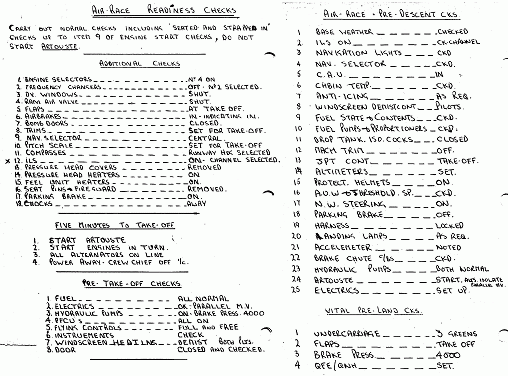 AIR-RACE READINESS CHECKS
CARRY OUT NORMAL CHECKS INCLUDING 'SEATED AND STRAPPED IN'
CHECKS UP TO ITEM 9 OF ENGINE START CHECKS, DO NOT
START ARTOUSTE.
ADDITIONAL CHECKS
1. ENGINE SELECTORS No 4 ON
2. FREQUENCY CHANGERS OFF. No 2 SELECTED.
3. D.V. WINDOWS SHUT.
4. RAM AIR VALVE SHUT.
5. FLAPS AT TAKE OFF.
6. AIRBRAKES IN - INDICATING IN.
7. BOMB DOORS CLOSED.
8. TRIMS SET FOR TAKE-OFF.
9. NAV SELECTOR CENTRAL
10. PITCH SCALE SET FOR TAKE-OFF
11. COMPASSES RUNWAY HDG SELECTED
x 12. ILS ON - CHANNEL SELECTED.
13. PRESSURE HEAD COVERS REMOVED
14. PRESSURE HEAD HEATERS ON
15. FEEL UNIT HEATERS ON.
16. SEAT PINS & FIRE GUARD REMOVED.
17. PARKING BRAKE ON.
18. CHOCKS AWAY
FIVE MINUTES TO TAKE-OFF
1. START ARTOUSTE
2. START ENGINES IN TURN.
3. ALL ALTERNATORS ON LINE
4. POWER AWAY - CREW CHIEF OFF I/C.
PRE-TAKE-OFF CHECKS
1. FUEL ALL NORMAL
2. ELECTRICS OK - PARALLEL M.V.
3. HYDRAULIC PUMPS ON - BRAKE PRESS 4000
4. PFCU'S ALL ON
5. FLYING CONTROLS FULL AND FREE
6. INSTRUMENTS CHECK
7. WINDSCREEN DEMIST
8. DOOR CLOSED AND CHECKED.
AIR-RACE - PRE-DESCENT CKS.
1 BASE WEATHER CHECKED
2 ILS ON CK. CHANNEL
3 NAVIGATION LIGHTS CKD
4 NAV. SELECTOR CKD.
5 C.A.U. IN
6 CABIN TEMP CKD.
7 ANTI-ICING AS REQ.
8 WINDSCREEN DEMIST CONT PILOTS.
9 FUEL STATE & CONTENTS CKD.
10 FUEL PUMPS & PROPORTIONERS CKD.
11 DROP TANK. ISO. COCKS CLOSED
12 MACH TRIM OFF.
13 JPT CONT TAKE-OFF.
14 ALTIMETERS SET.
15 PROTECT. HELMETS ON.
16 A.U.W & THRESHOLD. SP. CKD.
17 N.W. STEERING ON.
18 PARKING BRAKE OFF.
19 HARNESS LOCKED
20 LANDING LAMPS AS REQ.
21 ACCELEMETER NOTED
22 BRAKE CHUTE CKD.
23 HYDRAULIC PUMPS BOTH NORMAL
24 ARTOUSTE START, ISOLATE
25 ELECTRICS SET UP.
VITAL PRE-LAND CKS.
1 UNDERCARRIAGE 3 GREENS
2 FLAPS TAKE OFF
3 BRAKE PRESS 4000
4 QFE/QNH SET.